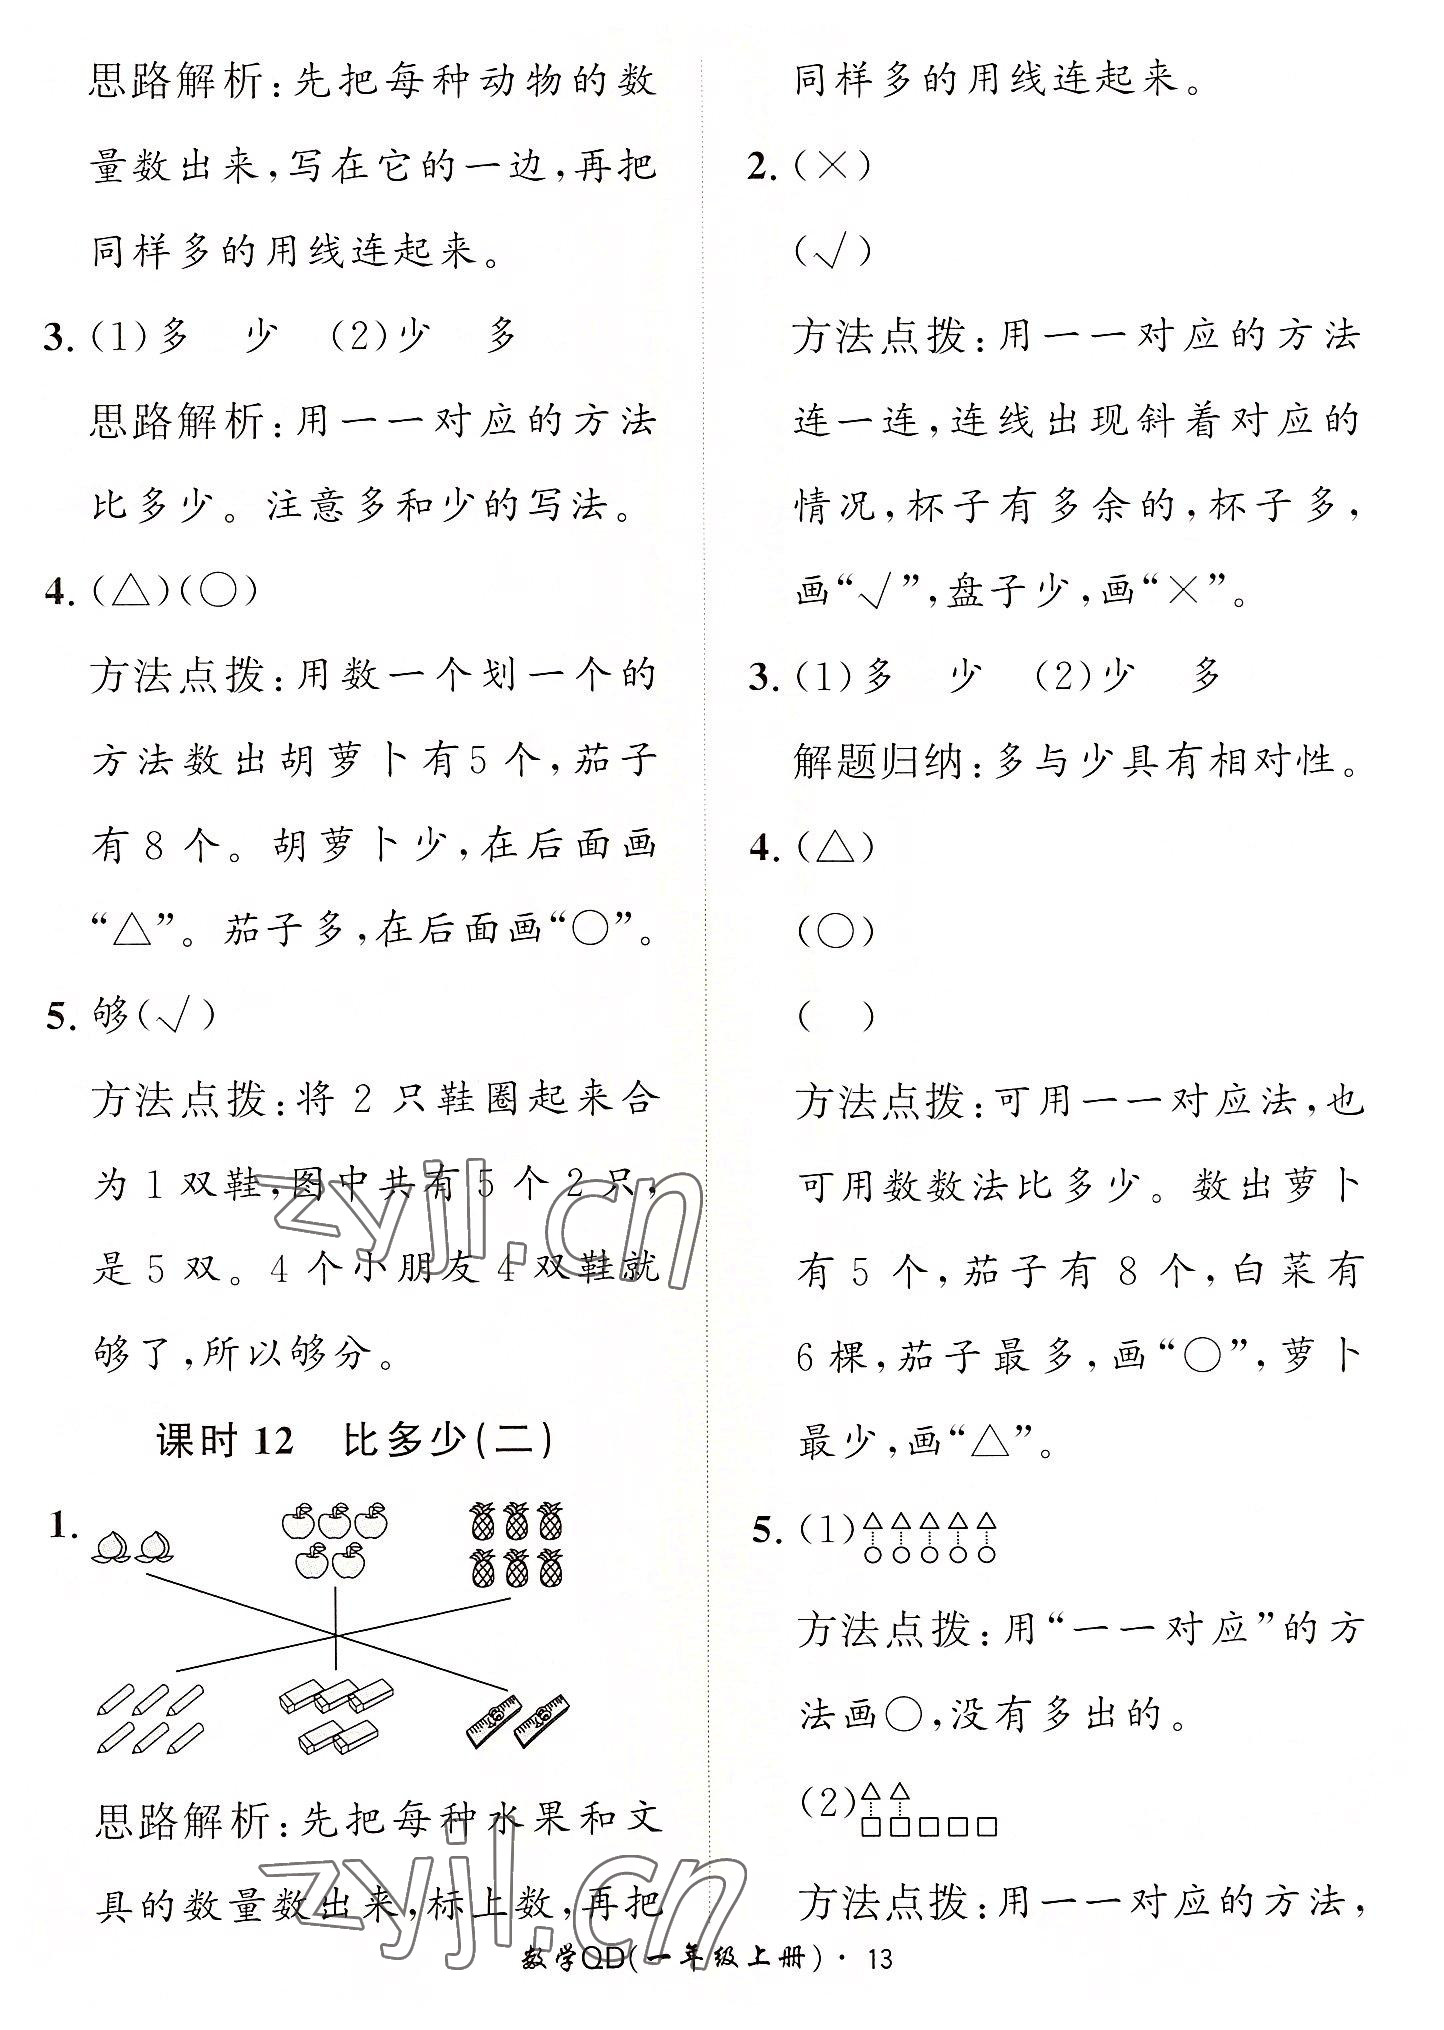 思路解析:先把每种动物的数
量数出来,写在它的一边,再把
同样多的用线连起来。
3. (1)多 少 (2)少 多
思路解析:用一一对应的方法
比多少。注意多和少的写法。
4. (△)(○)
方法点拨:用数一个划一个的
方法数出胡萝卜有5个,茄子
有8个。胡萝卜少,在后面画
“△”。茄子多,在后面画“○”。
5. 够(√)
方法点拨:将2只鞋圈起来合
为1双鞋,图中共有5个2只,
是5双。4个小朋友4双鞋就
够了,所以够分。
课时12 比多少(二)
1.
思路解析:先把每种水果和文
具的数量数出来,标上数,再把
同样多的用线连起来。
2. (×)
(√)
方法点拨:用一一对应的方法
连一连,连线出现斜着对应的
情况,杯子有多余的,杯子多,
画“√”,盘子少,画“×”。
3. (1)多 少 (2)少 多
解题归纳:多与少具有相对性。
4. (△)
(○)
( )
方法点拨:可用一一对应法,也
可用数数法比多少。数出萝卜
有5个,茄子有8个,白菜有
6棵,茄子最多,画“○”,萝卜
最少,画“△”。
5. (1)△△△△△
○○○○○
方法点拨:用“一一对应”的方
法画○,没有多出的。
(2)△△
□□□□□
方法点拨:用一一对应的方法,
数学QD(一年级上册)·13
zyjl.cn
zyjl.cn